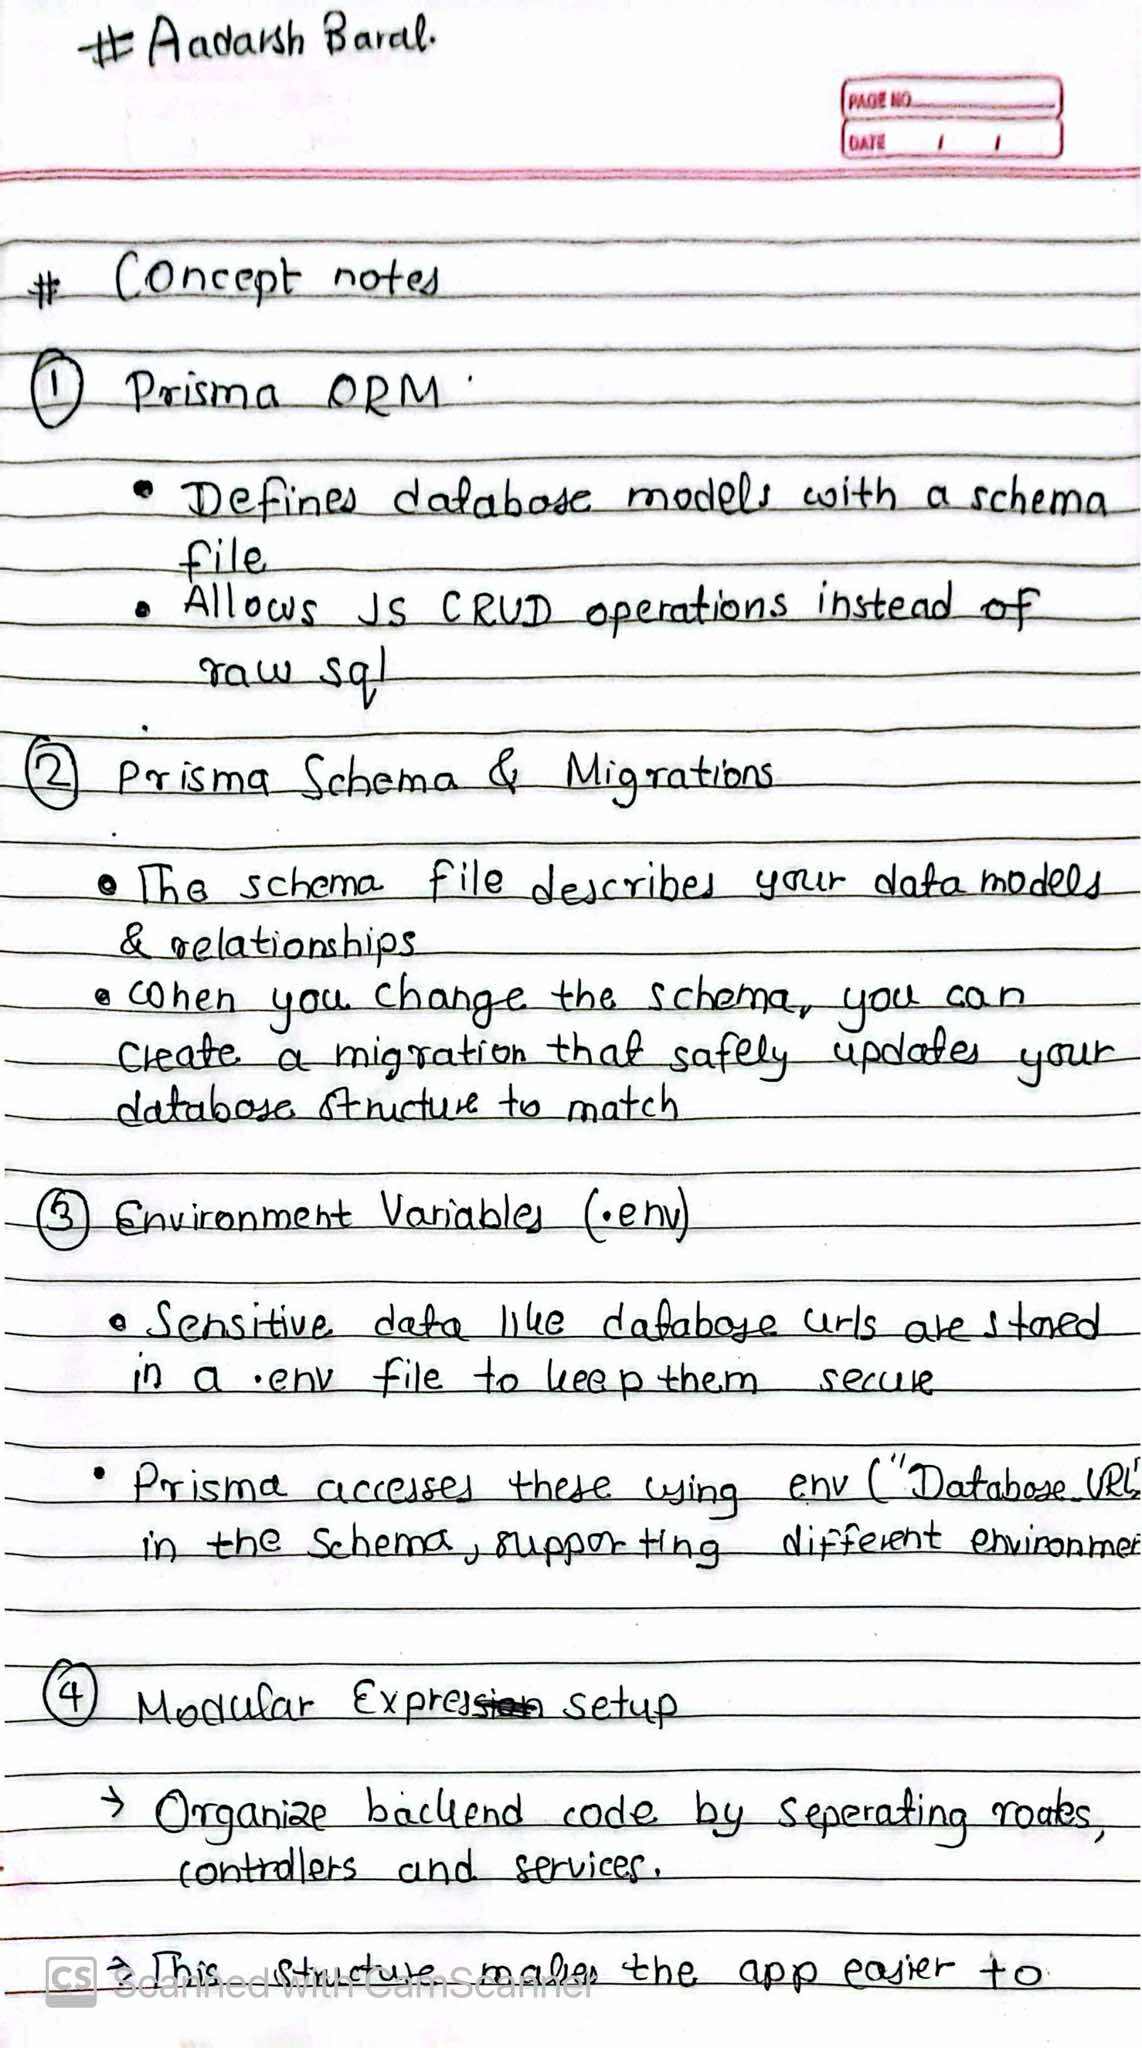 # Aadarsh Baral.
PAGE NO
DATE / /
# Concept notes
1 Prisma ORM
• Defines database models with a schema
file
• Allows JS CRUD operations instead of
raw sql
2 Prisma Schema & Migrations
• The schema file describes your data models
& relationships
• When you change the schema, you can
create a migration that safely updates your
database structure to match
3 Environment Variables (.env)
• Sensitive data like database urls are stored
in a .env file to keep them secure
• Prisma accesses these using env ("Database_URL"
in the schema, supporting different environmen
4 Modular Express setup
→ Organize backend code by seperating routes,
controllers and services.
→ This structure makes the app easier to
CS Scanned with CamScanner